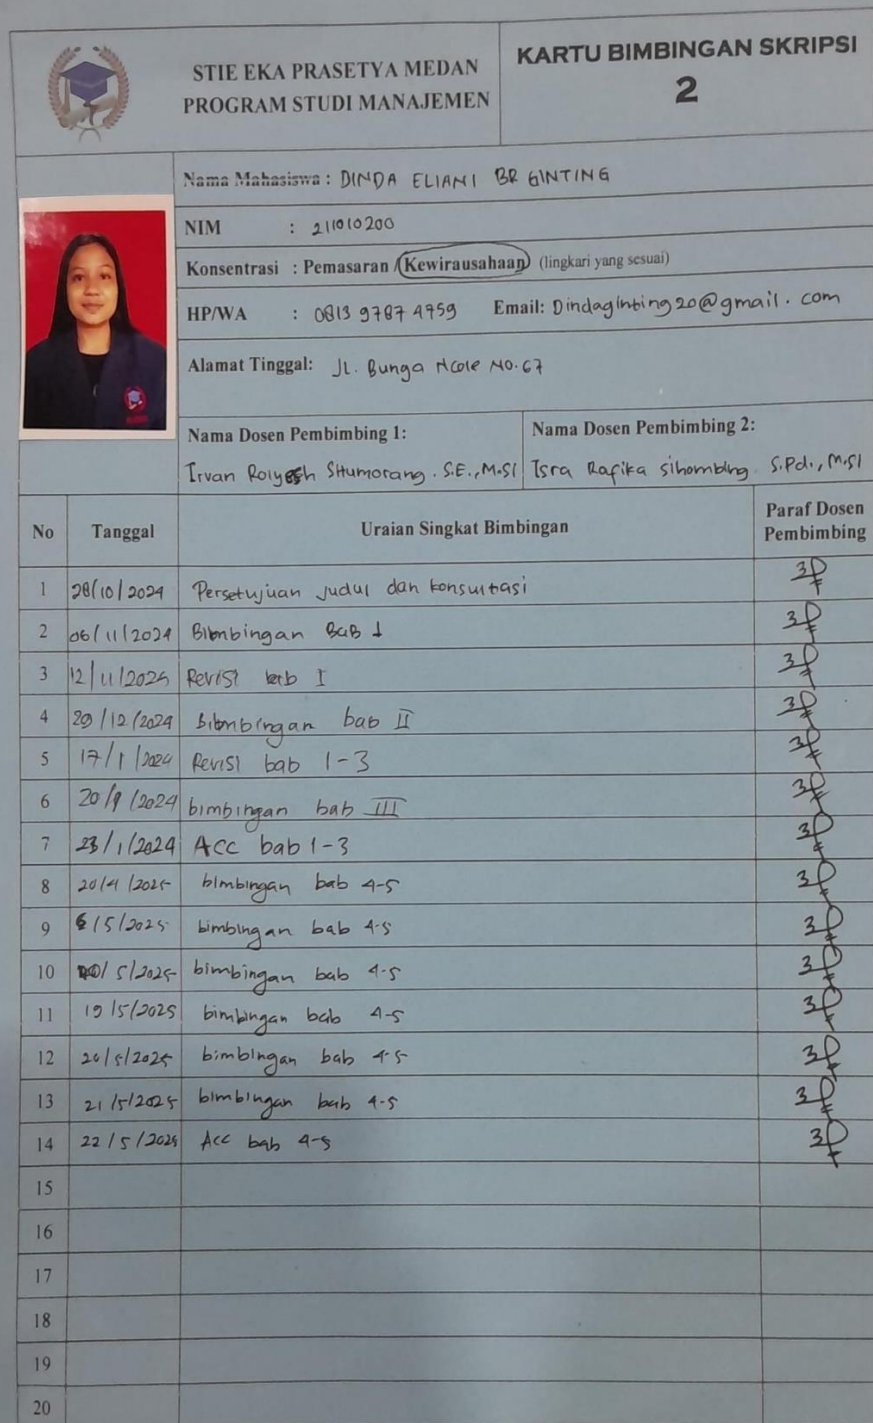 STIE EKA PRASETYA MEDAN
PROGRAM STUDI MANAJEMEN
KARTU BIMBINGAN SKRIPSI
2
Nama Mahasiswa : DINDA ELIANI BR GINTING
NIM : 211010200
Konsentrasi : Pemasaran / Kewirausahaan (lingkari yang sesuai)
HP/WA : 0813 9787 4759 Email: Dindaginting20@gmail.com
Alamat Tinggal: JL. Bunga Ncole No.67
Nama Dosen Pembimbing 1:
Irvan Rolyesh Situmorang. S.E., M.SI
Nama Dosen Pembimbing 2:
Isra Rafika Sihombing. S.Pd., M.SI
No Tanggal Uraian Singkat Bimbingan Paraf Dosen Pembimbing
1 28/10/2024 Persetujuan judul dan konsultasi
2 06/11/2024 Bimbingan BaB 1
3 12/11/2024 Revisi bab I
4 29/12/2024 Bimbingan bab II
5 17/1/2024 Revisi bab 1-3
6 20/1/2024 bimbingan bab III
7 23/1/2024 ACC bab 1-3
8 20/4/2025 bimbingan bab 4-5
9 6/5/2025 bimbingan bab 4-5
10 /5/2025 bimbingan bab 4-5
11 19/5/2025 bimbingan bab 4-5
12 20/5/2025 bimbingan bab 4-5
13 21/5/2025 bimbingan bab 4-5
14 22/5/2025 Acc bab 4-5
15
16
17
18
19
20